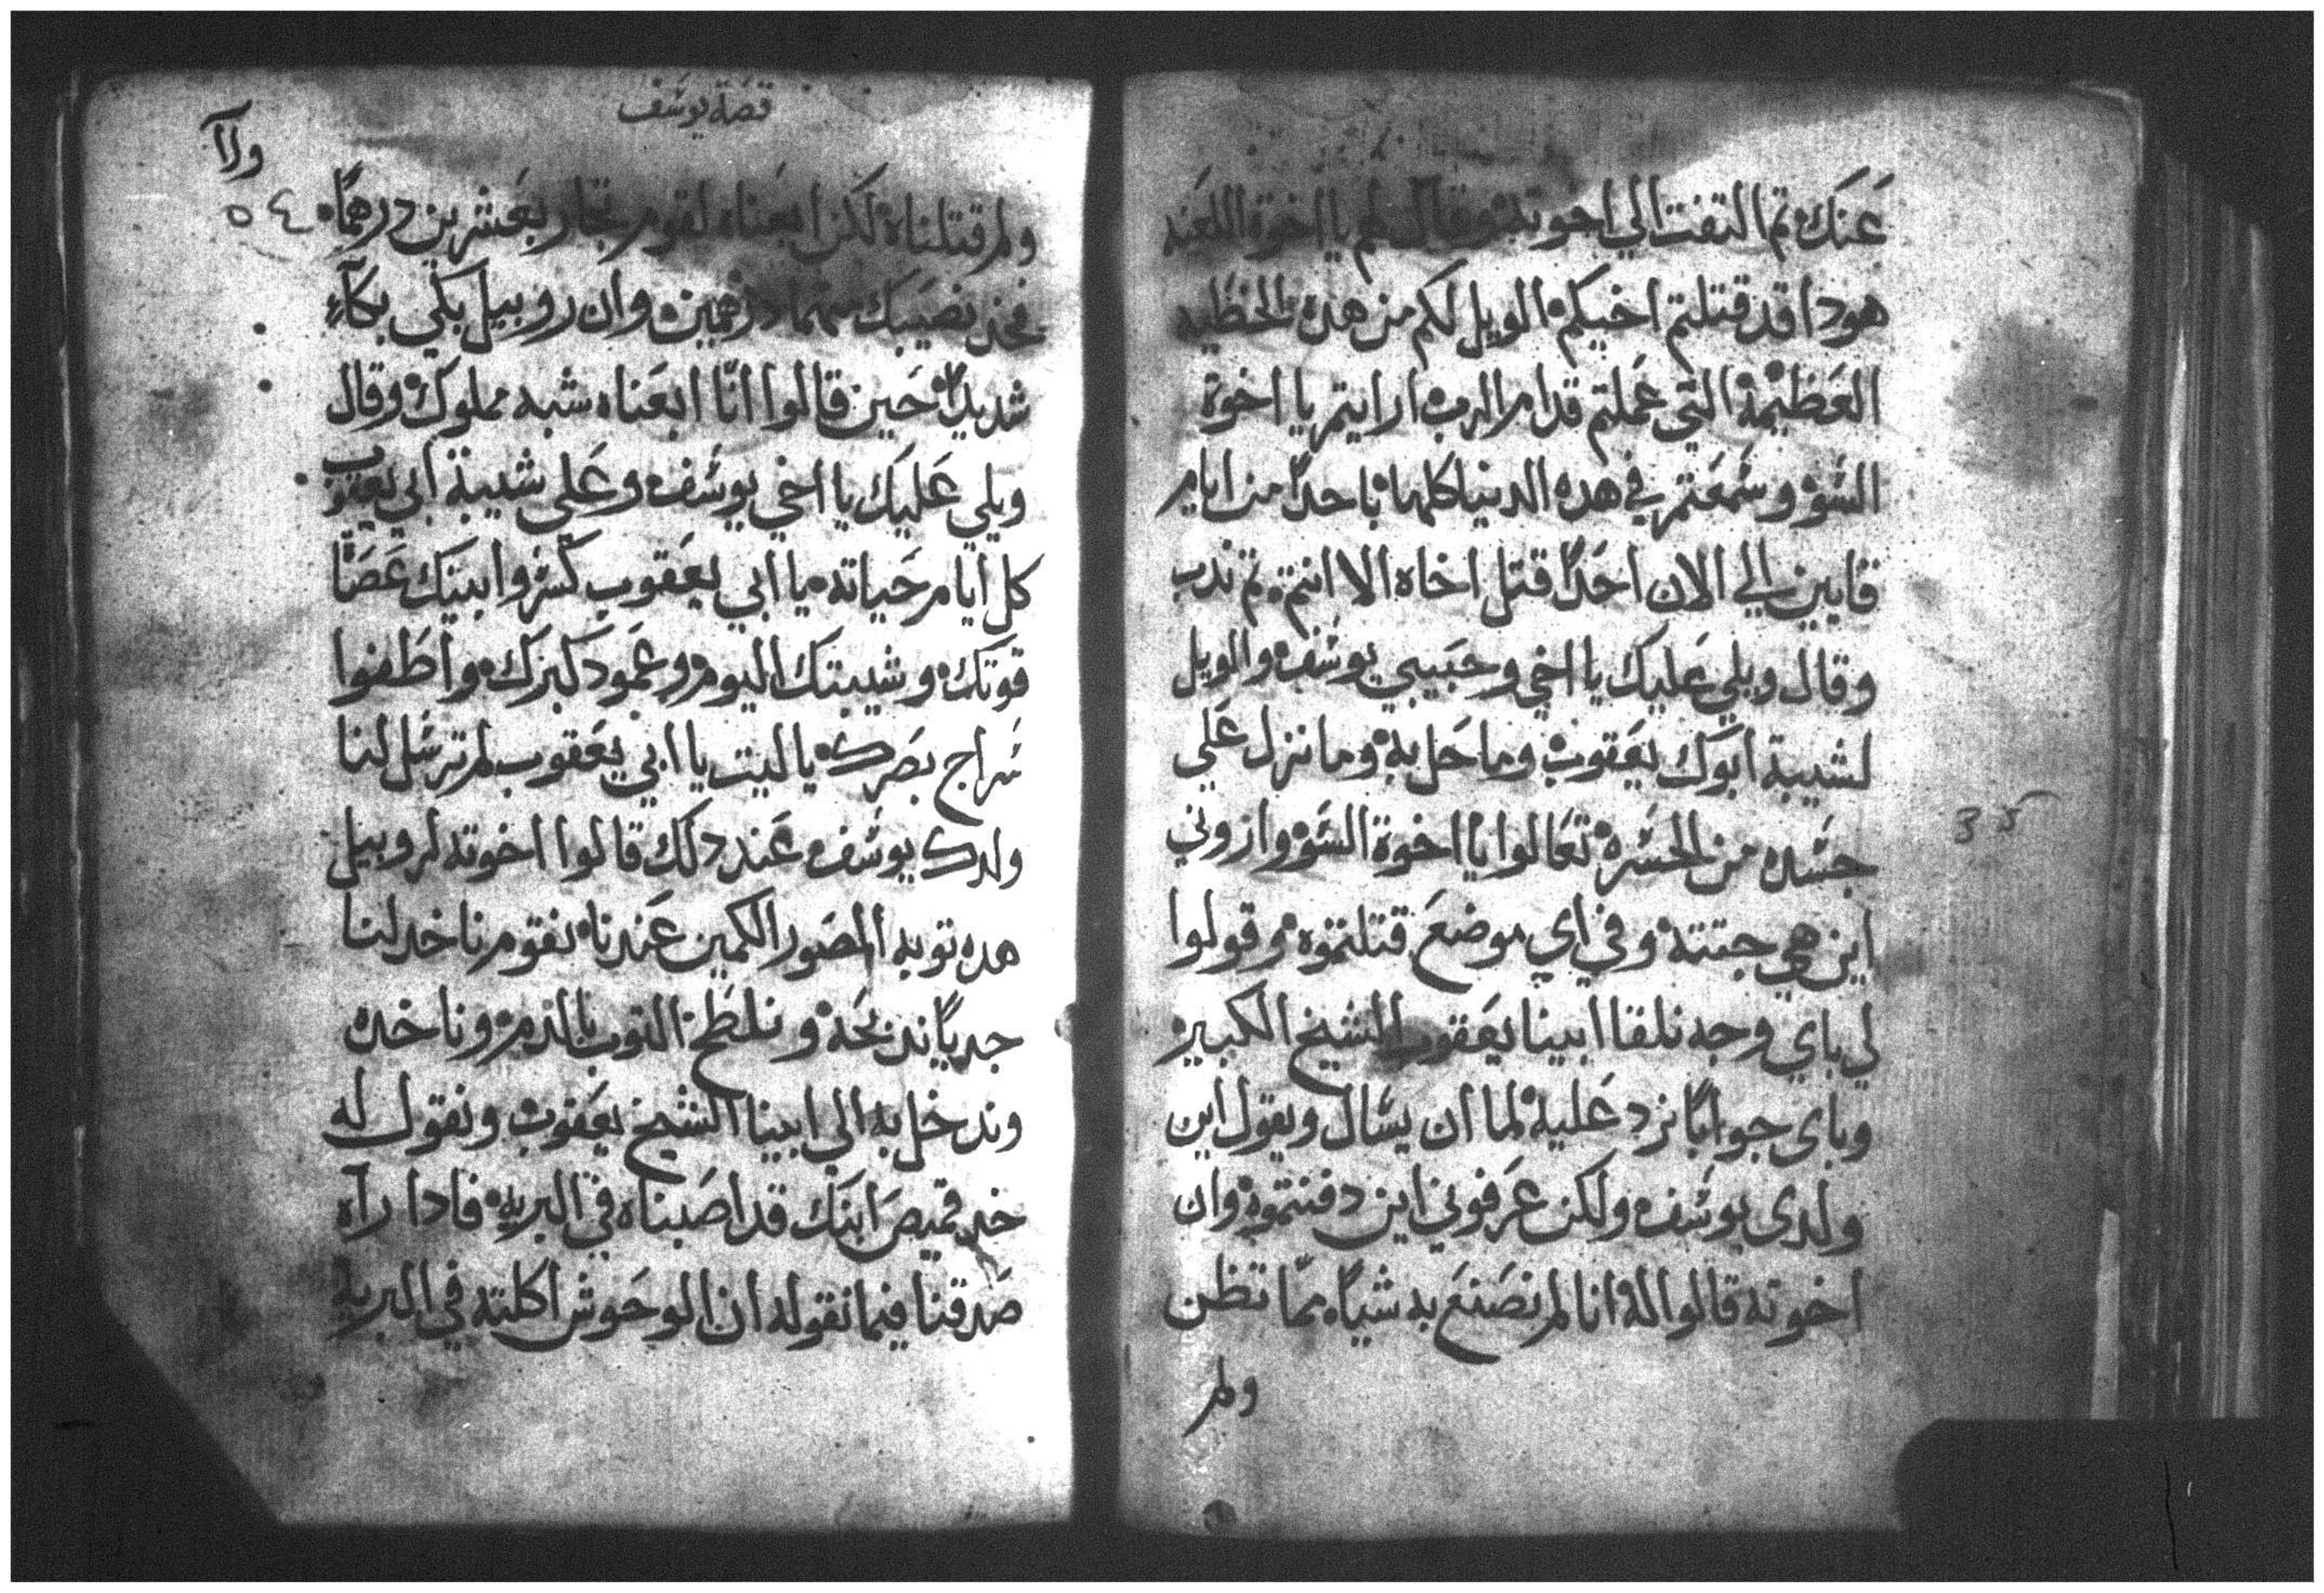 عَنَك تم التفت الي اخوته وقال لهم يا اخوة اللعَنه
هودا قد قتلتم اخيكم الويل لكم من هده الخطيه
العَظيمة التي عَملتم قدام الرب ارايتم يا اخوة
السَو وسَمعَتم في هده الدنيا كلها باحداً من ايام
قايين الي الان احَداً قتل اخاه الا انتم تم ندب
وقال ويلي عَليك يا اخي وحبَيبي يوسَف والويل
لشيبة ابوَك يعَقوب وما حَل به وما نزل عَلي
جسَده من الحسَره تعَالوا يا اخوة السَو واروني
اين هي جتته وفي اي موضعَ قتلتموه وقولوا
لي باي وجه نلقا ابينا يعَقوب الشيخ الكبير
وباي جواباً نرد عَليه لما ان يسَال ويقول اين
ولدي يوسَف ولكن عَرفوني اين دفنتموه وان
اخوته قالوا له انا لم نصَنعَ به شياً مما تظن
ولم
35
قصَة يوسَف
ولاآ
٥٤
ولم قتلناه لكن ابعَناه لقوم تجار بعَشرين درهماً
فخد نصَيبك منهما درهمين وان روبيل بكي بكآء
شديداً حَين قالوا انّا ابعَناه شبه مملوك وقال
ويلي عَليَك يا اخي يوسَف وعَلي شيبة ابي يعَقوب
كل ايام حَياته يا ابي يعَقوب كسَروا ابنيَك عَصَاة
قوتك وشيبتك اليوم وعَمود كبرَك واطَفوا
سَراج بصَرك يا ليت يا ابي يعَقوب لم ترسَل لنا
ولدك يوسَف عَند دلك قالوا اخوته لروبيل
هده توبه المصَور الكمين عَندنا نقوم ناخد لنا
جدياً ندبحَه ونلطَخ التوب بالدم وناخده
وندخل به الي ابينا الشيخ يعَقوب ونقول له
خد قميصَ ابنَك قد اصَبناه في البريه فادا رآه
صَدقنا فيما نقوله ان الوحَوش اكلته في البريه